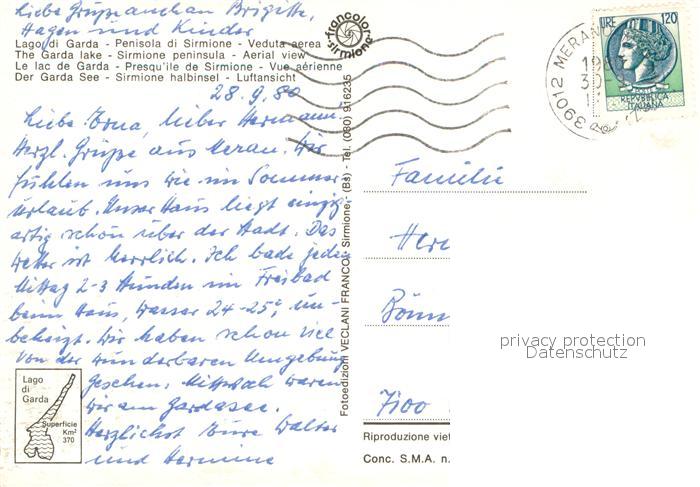 Liebe Grüße an Brigitte,
Hagen und Kinder
Lago di Garda - Penisola di Sirmione - Veduta aerea
The Garda lake - Sirmione peninsula - Aerial view
Le lac de Garda - Presqu'ile de Sirmione - Vue aérienne
Der Garda See - Sirmione halbinsel - Luftansicht
28.9.80
Liebe Erna, lieber Hermann,
Herzl. Grüße aus Meran. Wir
fühlen uns wie im Sommer-
urlaub. Unser Haus liegt einzig-
artig schön über der Stadt. Das
Wetter ist herrlich. Ich bade jeden
Mittag 2-3 Stunden im Freibad
beim Haus, Wasser 24-25°, un-
beheizt. Wir haben schon viel
von der wunderbaren Umgebung
gesehen. Mittwoch waren
wir am Gardasee.
Herzlichst Eure Walter
und Hermine
Lago
di
Garda
Superficie
Km²
370
francolor
sirmione
Fotoedizioni VECLANI FRANCO - Sirmione, (Bs) - Tel. (030) 916235
LIRE 120
REPVBBLICA
ITALIANA
39012 MERANO
30
Familie
Herm
Bönn
7100
Riproduzione viet
Conc. S.M.A. n.
privacy protection
Datenschutz